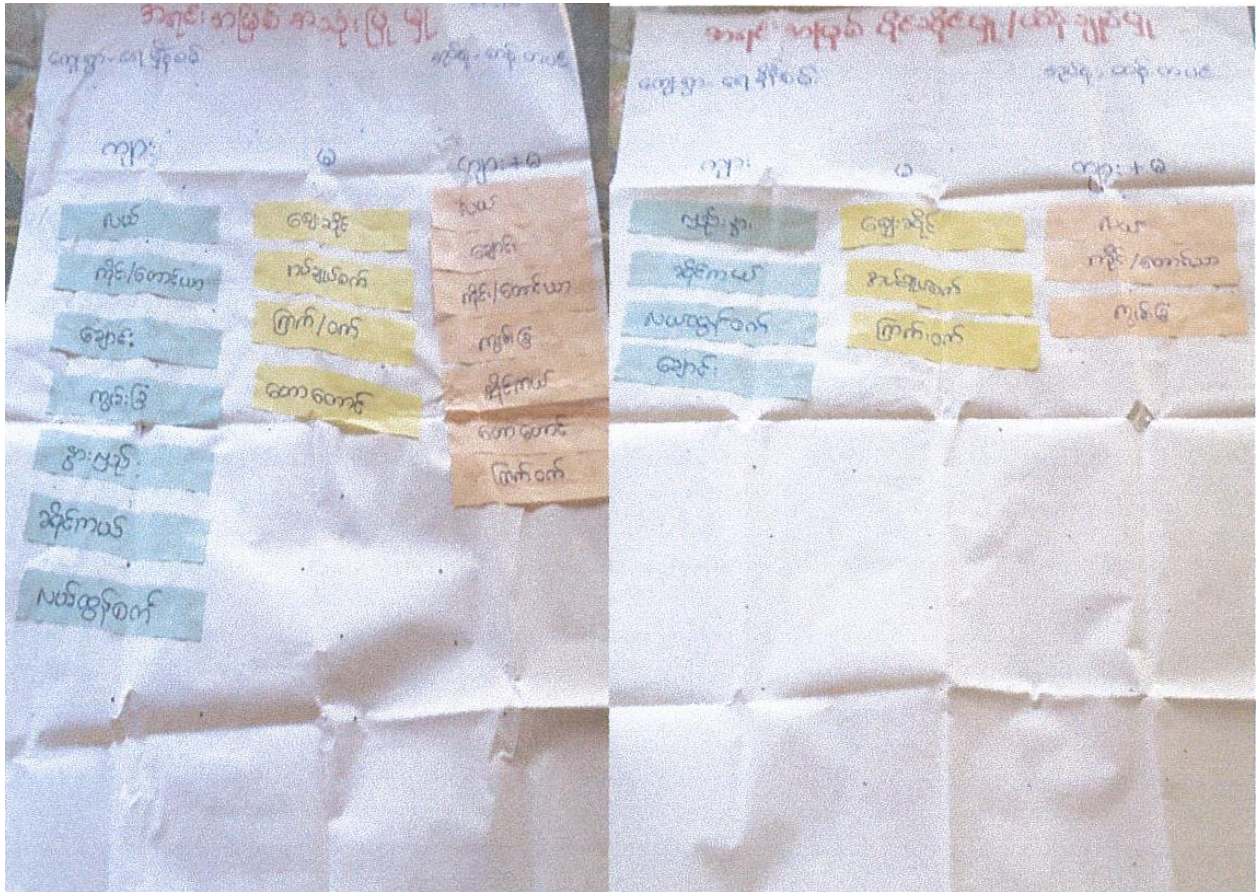 အရင်းအမြစ် အသုံးပြုမှု
ကျေးရွာ - ရေ
ကျား
မ
ကျား + မ
လယ်
ကိုင်း/တောင်ယာ
ချောင်း
ကျွန်းခြံ
နွားလှည်း
ဆိုင်ကယ်
လယ်ထွန်စက်
ဈေးဆိုင်
စပ်ချုပ်စက်
ကြက်/ဝက်
တောတောင်
လယ်
ချောင်း
ကိုင်း/တောင်ယာ
ကျွန်းခြံ
ဆိုင်ကယ်
တောတောင်
ကြက်ဝက်
အရင်းအမြစ် ပိုင်ဆိုင်မှု/ထိန်းချုပ်မှု
ကျေးရွာ - ရေ
ကျား
မ
ကျား + မ
လှည်းနွား
ဆိုင်ကယ်
လယ်ထွန်စက်
ချောင်း
ဈေးဆိုင်
စပ်ချုပ်စက်
ကြက်ဝက်
လယ်
ကိုင်း/တောင်ယာ
ကျွန်းခြံ